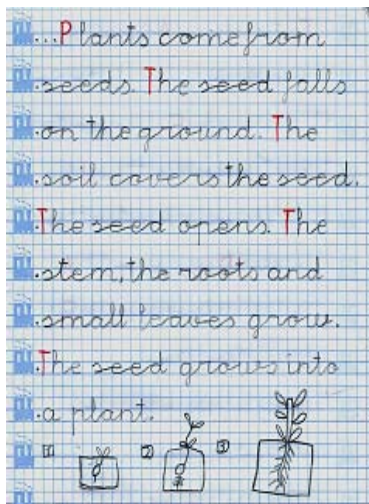 ...Plants come from
seeds. The seed falls
on the ground. The
soil covers the seed.
The seed opens. The
stem, the roots and
small leaves grow.
The seed grows into
a plant.
1 2 3